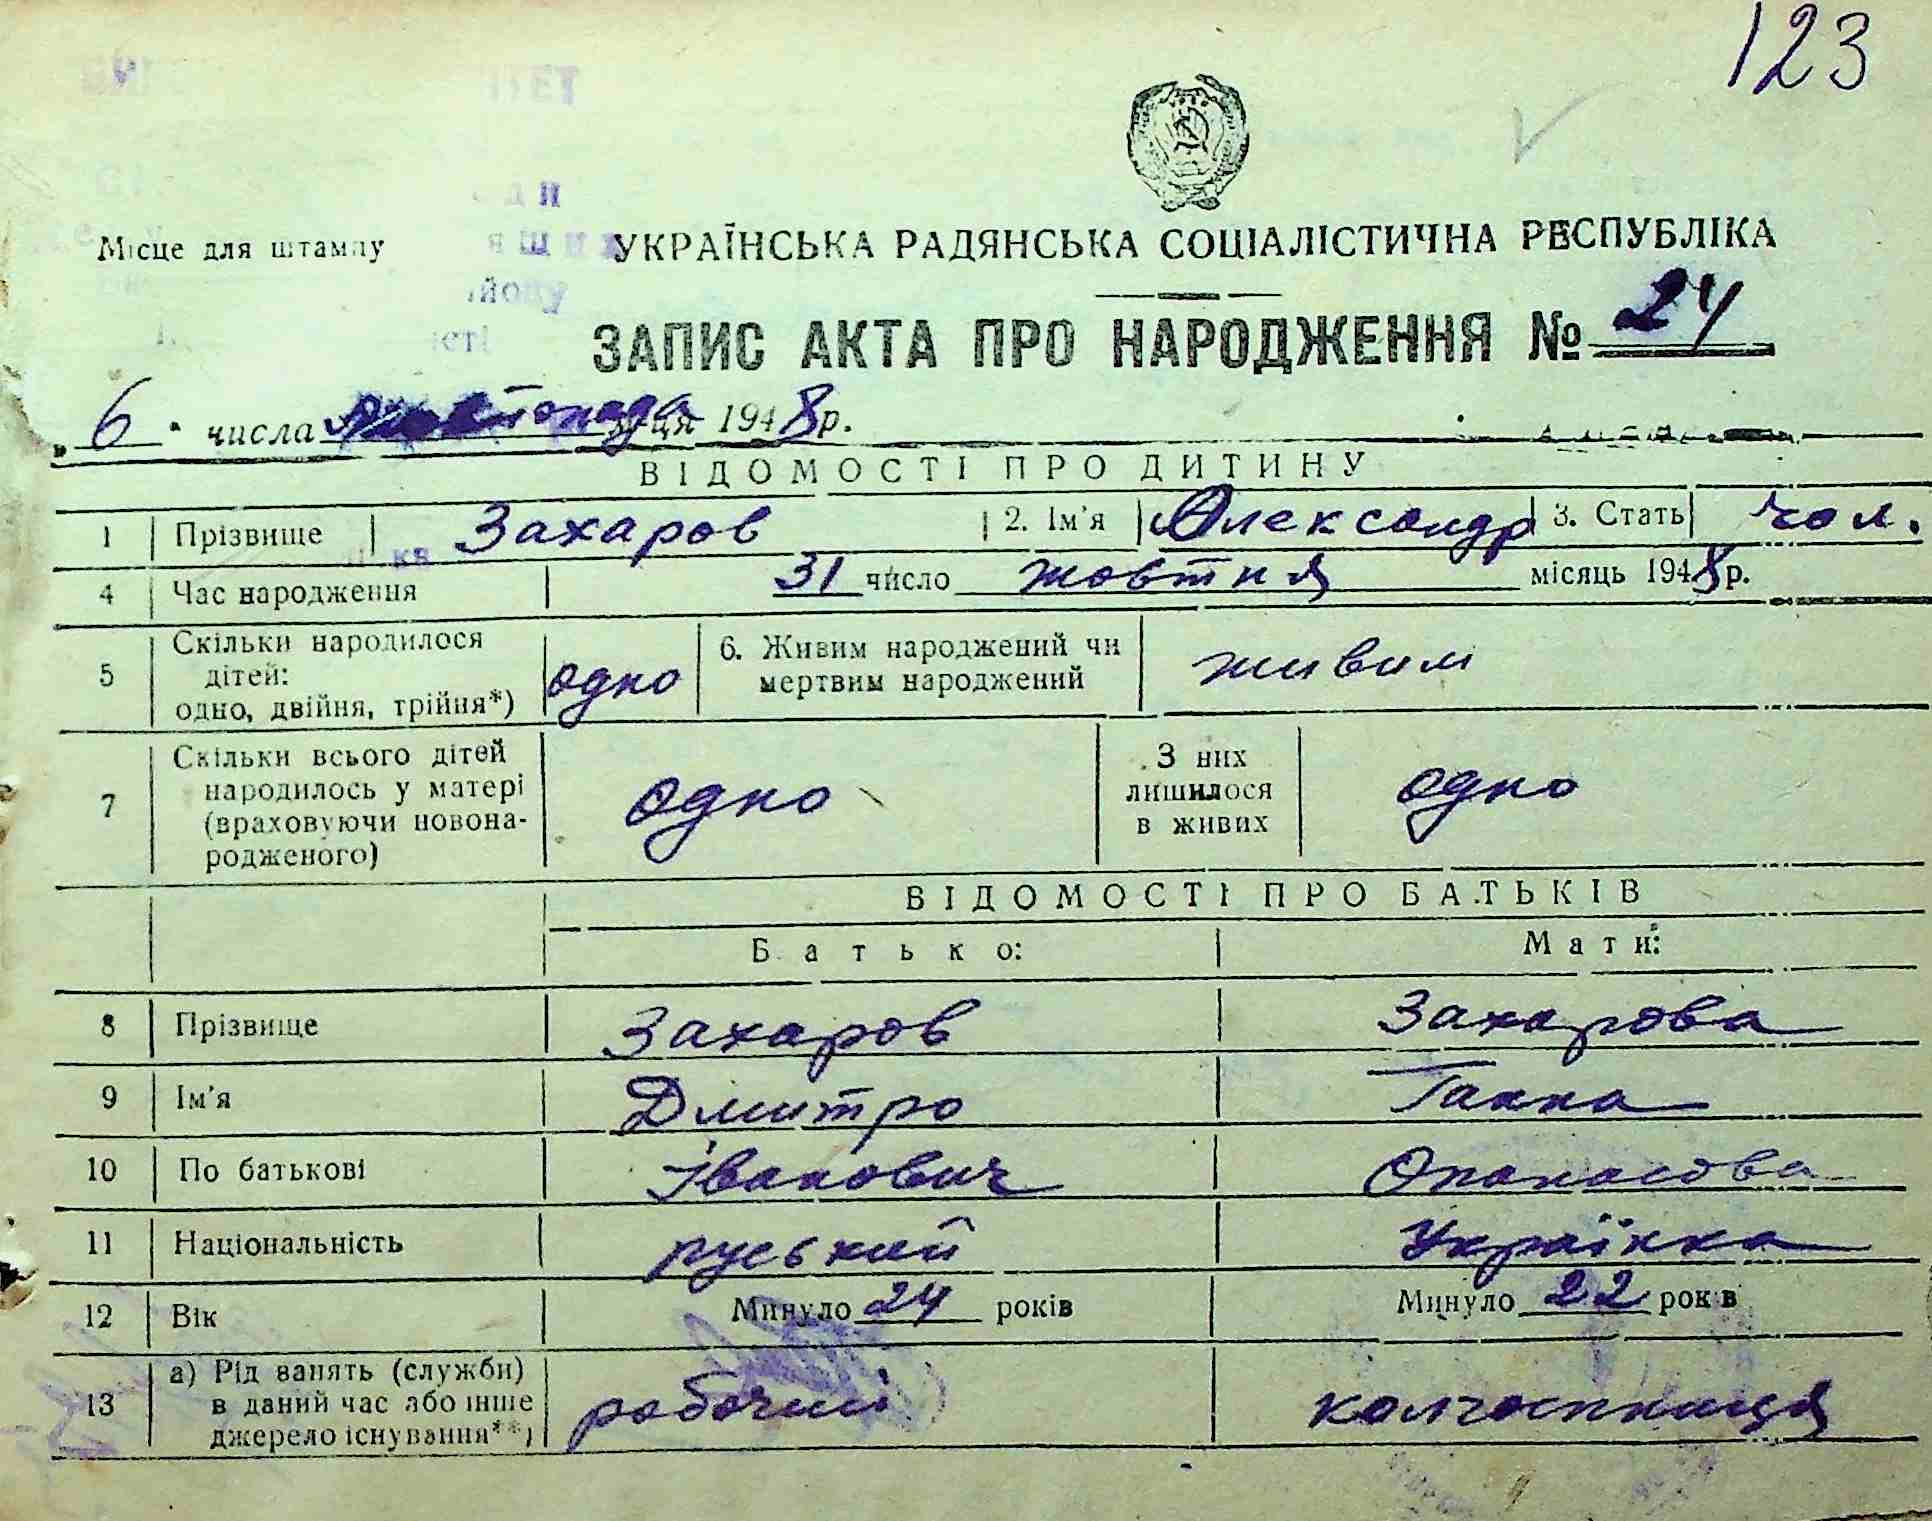 123
Місце для штампу
УКРАЇНСЬКА РАДЯНСЬКА СОЦІАЛІСТИЧНА РЕСПУБЛІКА
ЗАПИС АКТА ПРО НАРОДЖЕННЯ № 24
„ 6 " числа листопада м-ця 1948 р.
ВІДОМОСТІ ПРО ДИТИНУ
1 Прізвище Захаров 2. Ім'я Олександр 3. Стать чол.
4 Час народження 31 число жовтня місяць 1948 р.
5 Скільки народилося дітей: одно, двійня, трійня*) одно 6. Живим народжений чи мертвим народжений живим
7 Скільки всього дітей народилось у матері (враховуючи новонародженого) одно З них лишилося в живих одно
ВІДОМОСТІ ПРО БАТЬКІВ
Батько: Мати:
8 Прізвище Захаров Захарова
9 Ім'я Дмитро Ганна
10 По батькові Іванович Опанасова
11 Національність руський Українка
12 Вік Минуло 24 років Минуло 22 років
13 а) Рід занять (служби) в даний час або інше джерело існування**) робочий колгоспниця